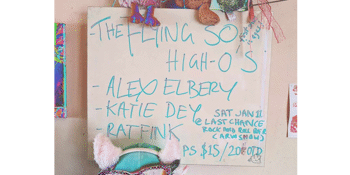 -THE FLYING SO
HIGH-O'S
- ALEX ELBERY
- KATIE DEY
- RATFINK
SAT JAN 11
@ LAST CHANCE
ROCK AND ROLL BAR
(ARVO SHOW)
PS $15/20